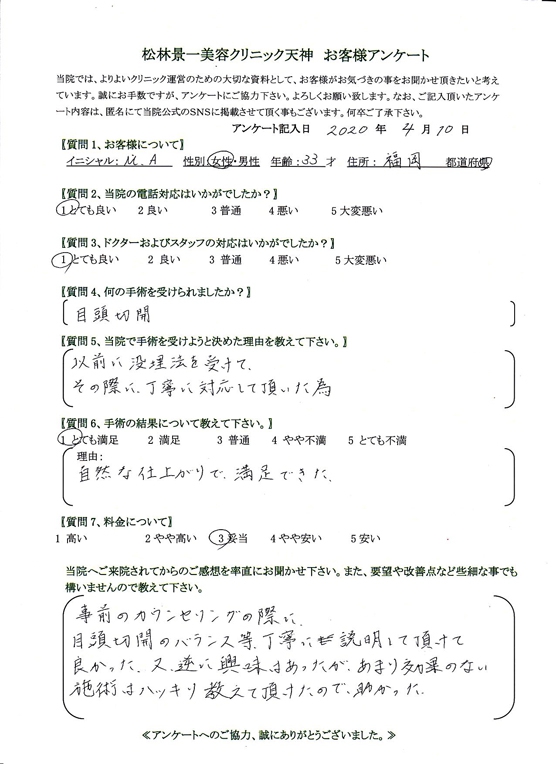 松林景一美容クリニック天神　お客様アンケート
当院では、よりよいクリニック運営のための大切な資料として、お客様がお気づきの事をお聞かせ頂きたいと考え
ています。誠にお手数ですが、アンケートにご協力下さい。よろしくお願い致します。なお、ご記入頂いたアンケ
ート内容は、匿名にて当院公式のSNSに掲載させて頂く事もございます。何卒ご了承下さい。
アンケート記入日　2020　年　4　月　10　日
〖質問1、お客様について〗
イニシャル：M.A　性別：女性・男性　年齢：33　才　住所：　福岡　都道府県
〖質問2、当院の電話対応はいかがでしたか？〗
1とても良い　2良い　3普通　4悪い　5大変悪い
〖質問3、ドクターおよびスタッフの対応はいかがでしたか？〗
1とても良い　2 良い　3 普通　4悪い　5大変悪い
〖質問4、何の手術を受けられましたか？〗
目頭切開
〖質問5、当院で手術を受けようと決めた理由を教えて下さい。〗
以前に没埋法を受けて、
その際に、丁寧に対応して頂いた為
〖質問6、手術の結果について教えて下さい。〗
1 とても満足　2 満足　3 普通　4 やや不満　5 とても不満
理由：
自然な仕上がりで、満足できた。
〖質問7、料金について〗
1 高い　2やや高い　3妥当　4やや安い　5安い
当院へご来院されてからのご感想を率直にお聞かせ下さい。また、要望や改善点など些細な事でも
構いませんので教えて下さい。
事前のカウンセリングの際に、
目頭切開のバランス等、丁寧に説明して頂けて
良かった。又、逆に興味はあったが、あまり効果のない
施術はハッキリ教えて頂けたので、助かった。
≪アンケートへのご協力、誠にありがとうございました。≫